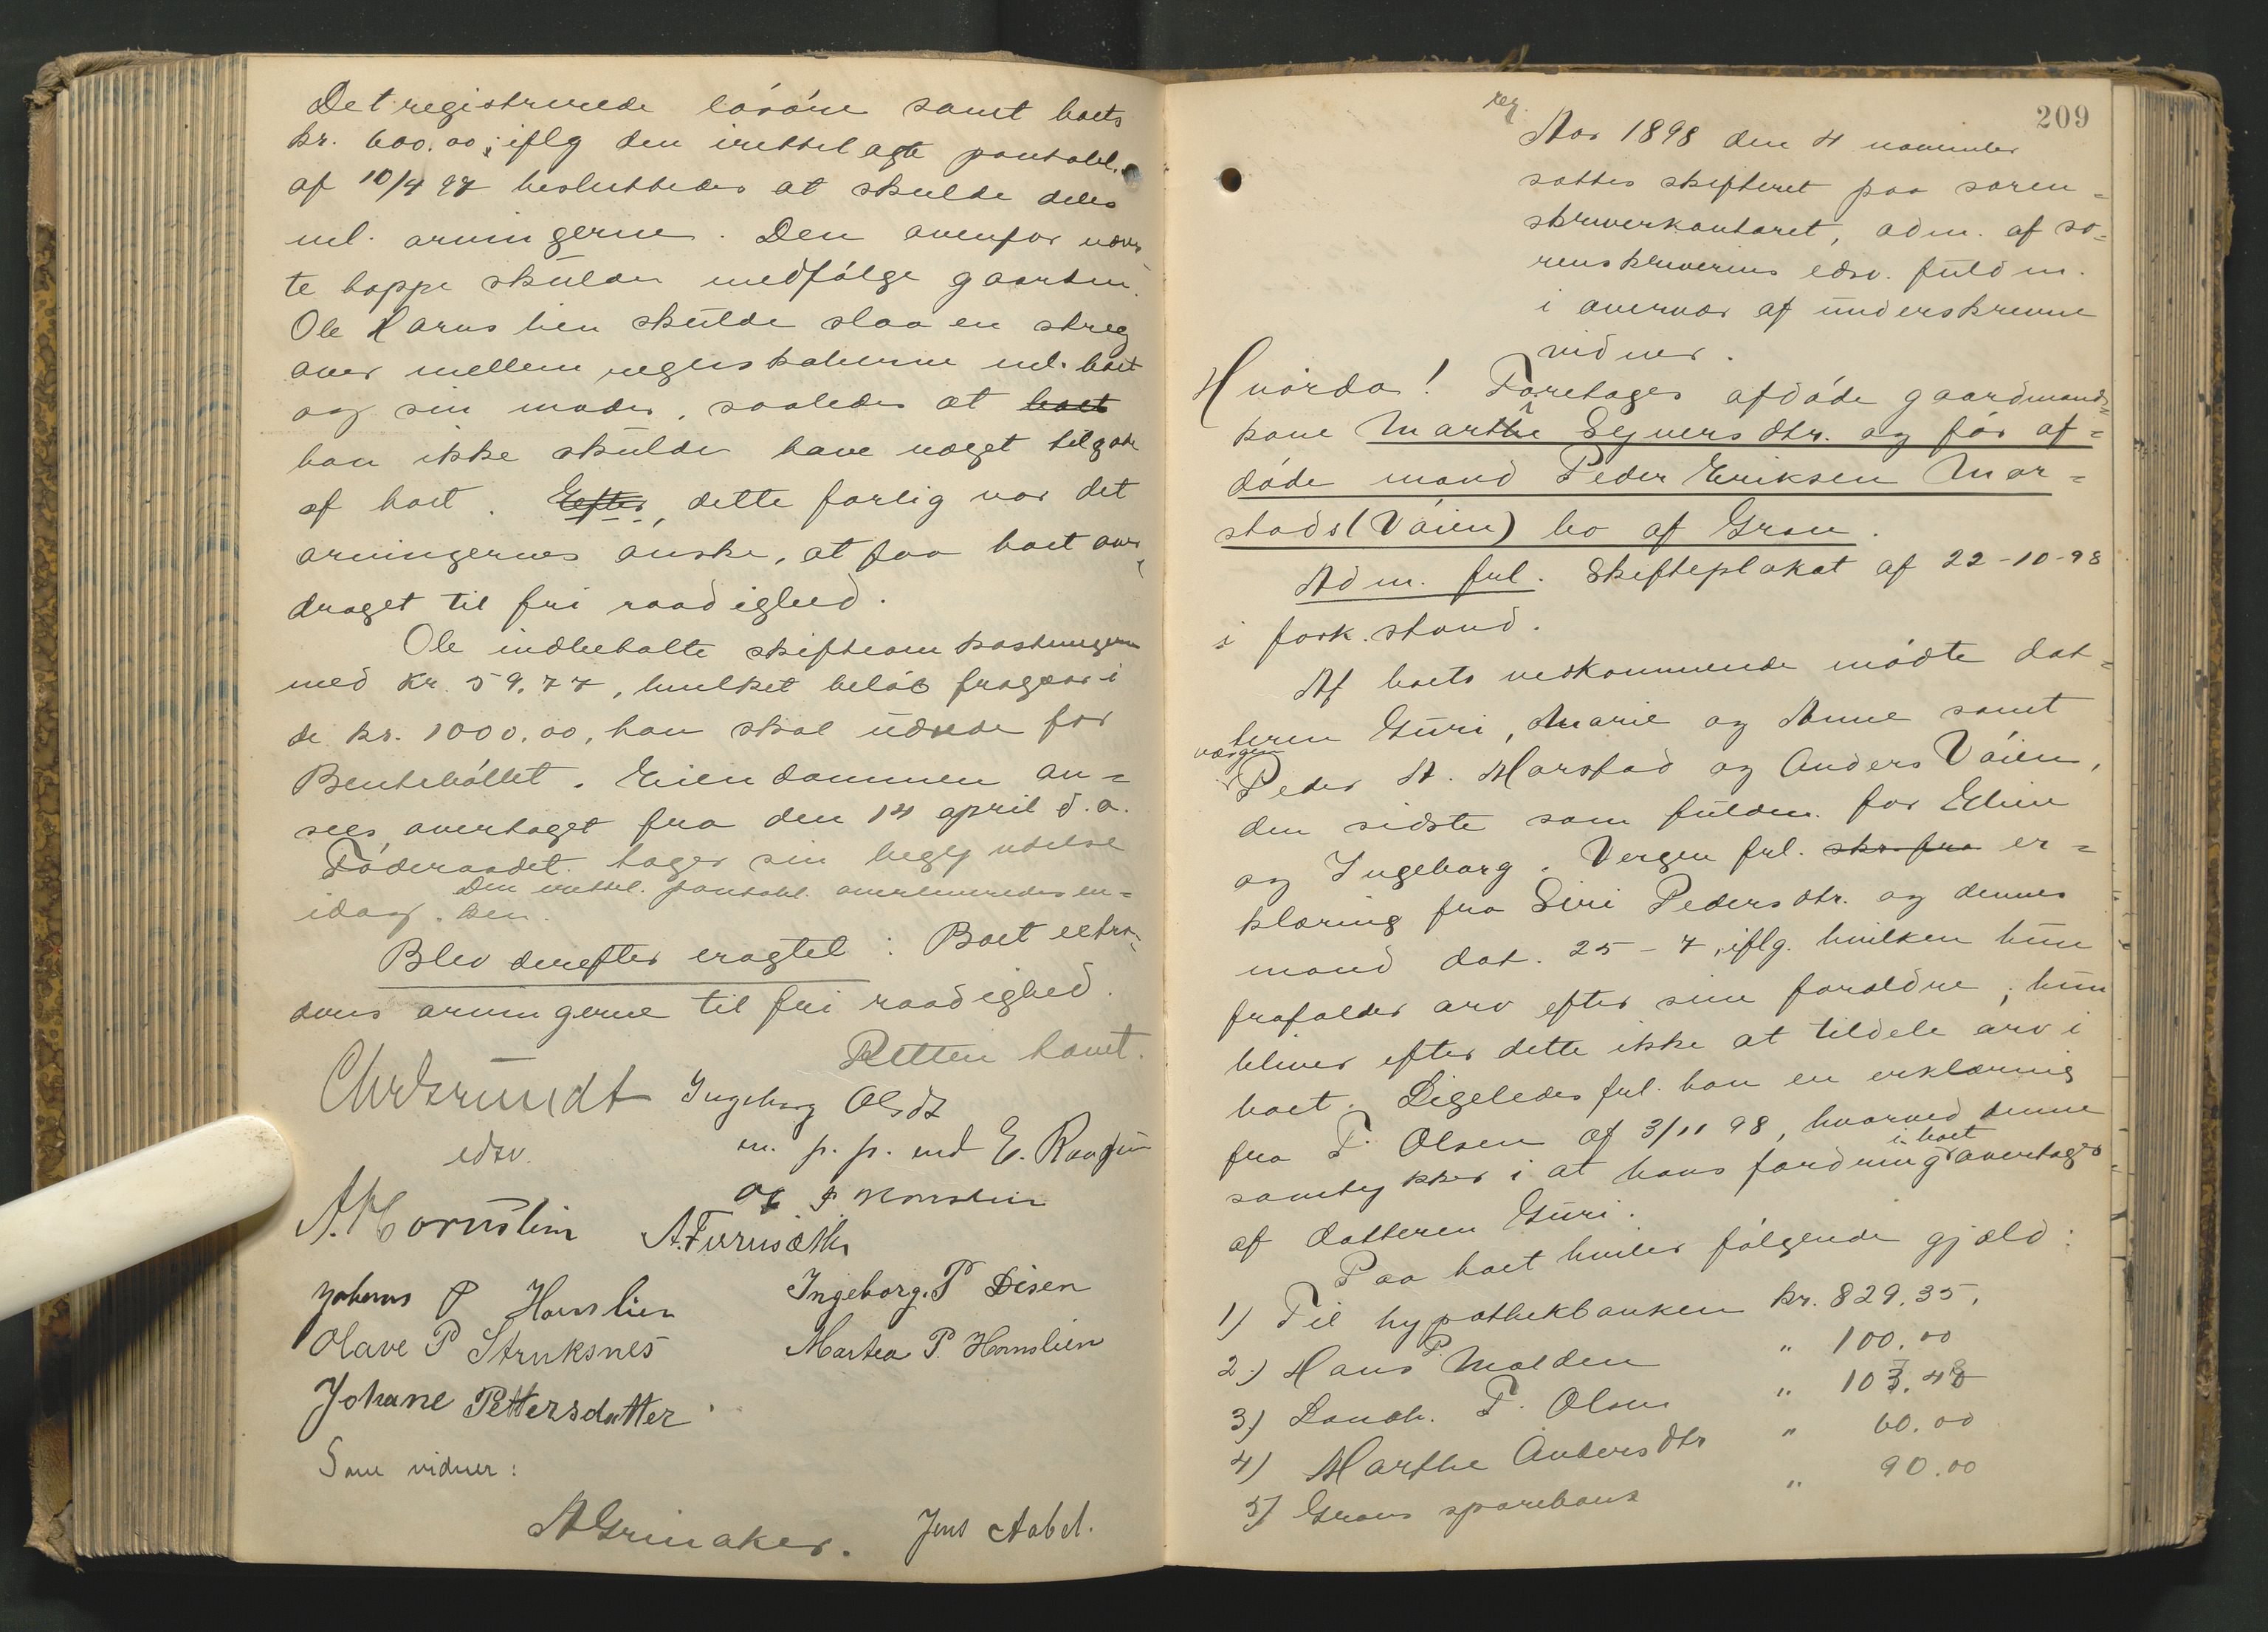 Det registrerede løsøre samt boets
kr. 600.00; iflg den irettelagte pantobl.
af 10/4 97 besluttedes at skulde deles
ml. arvingerne. Den ovenfor nævn
te hoppe skulde medfølge gaarden.
Ole Hornslien skulde slaa en streg
over mellem regnskaberne ml. boet
og sin moder, saaledes at boet
han ikke skulde have noget tilgode
af boet. Efter dette forlig var det
arvingernes ønske, at faa boet over
draget til fri raadighed.
Ole indbetalte skifteomkostningerne
med kr. 59.77, hvilket beløb fragaar i
de kr. 1000.00, han skal udrede for
Bentebøllet. Eiendommen an=
sees overtaget fra den 14 april d. a.
Føderaadet tager sin begyndelse
idag. Den irettel. pantobl. overleveredes en=
ken.
Blev derefter eragtet: Boet extra-
deres arvingerne til fri raadighed.
Retten hævet.
Ingeborg Olsdt
edsv.
m. p. p. ved E.
A. Hornslien A. Furuseth
Johannes P Hornslien Ingeborg. P Disen
Olave P Struksnes Martea P. Hornslien
Johane Pettersdatter
Som vidner:
AGrinaker. Jens Aabel.
209
reg.
Aar 1898 den 4 november
sattes skifteret paa soren=
skriverkontoret, adm. af so=
renskriverens edsv. fuldm.
i overvær af underskrevne
vidner.
Hvorda! Foretages afdøde gaardmands
kone Marthe Sejversdtr. og før af=
døde mand Peder Eriksen Mor=
stads (Vøien) bo af Gran.
Adm. frl. Skifteplakat af 22-10-98
i fork. stand.
Af boets vedkommende mødte dat=
teren Guri, Marie og Anne samt
værgen
Peder A. Morstad og Anders Vøien,
den sidste som fuldm. for Eline
og Ingeborg. Vergen frl. skr. fra er=
klæring fra Siri Pedersdtr. og dennes
mand dat. 25-7, iflg. hvilken hun
frafalder arv efter sine forældre; hun
bliver efter dette ikke at tildele arv i
boet. Ligeledes frl. han en erklæring
fra T. Olsen af 3/11 98, hvorved denne
samtykker i at hans fordring i boet overtages
af datteren Guri.
Paa boet hviler følgende gjæld:
1) Til hypothekbanken kr. 829.35.
2) Hans P. Molden " 100.00
3) Landh. T. Olsen " 103.48
4) Marthe Andersdtr " 60.00
5) Grans sparebank " 90.00